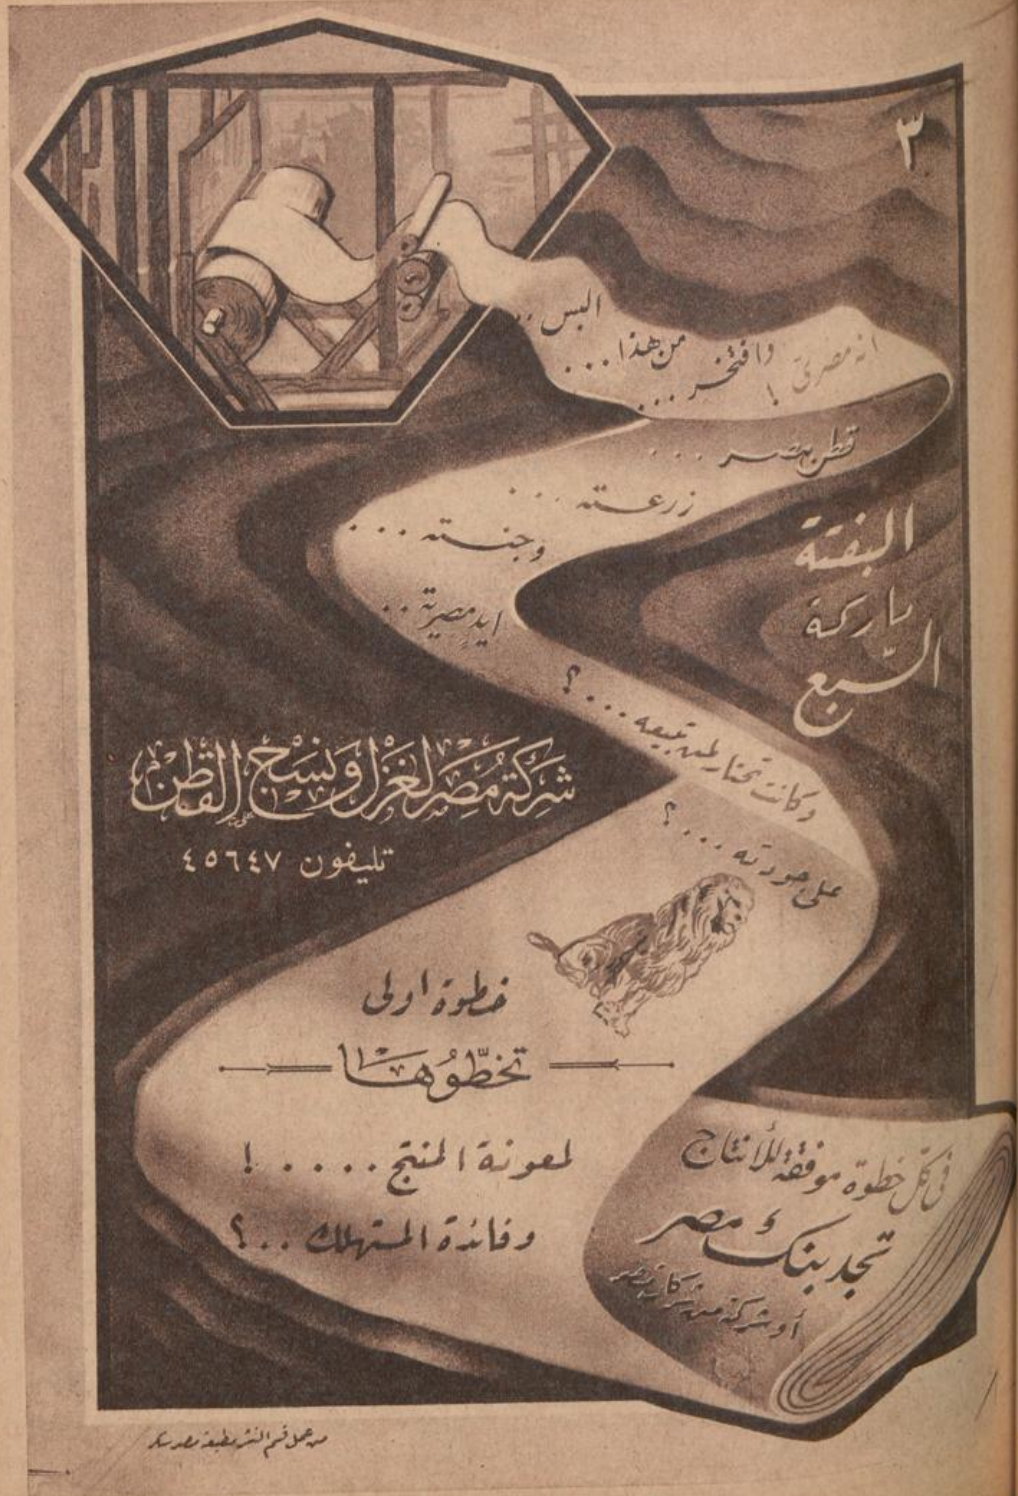 ٣
البس ..
من هذا ...
وافتخر ...
انه مصرى !
قطن مصر ...
زرعته ...
وجنته ...
ايدٍ مصرية ..
البفتة
ماركة
السّبع
وكانت تحتار لمن تبيعه ... ؟
على جودته ... ؟
شركة مصر لغزل ونسج القطن
تليفون ٤٥٦٤٧
خطوة اولى
تخطّوها
لمعونة المنتج ..... !
وفائدة المستهلك .. ؟
فى كلّ خطوة موفقة للأنتاج
تجد بنك مصر
أو شركة من شركات مصر
من عمل قسم النشر بمطبعة مصر